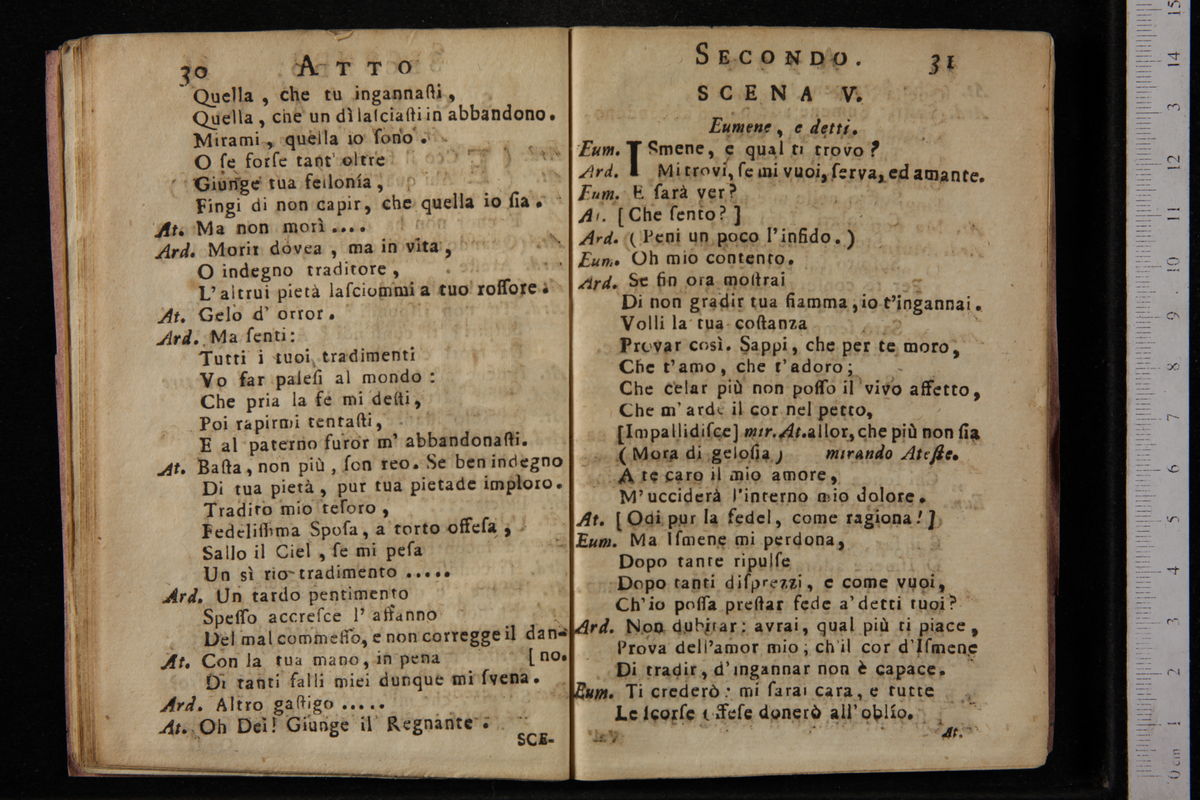 30 ATTO
Quella , che tu ingannaſti ,
Quella , che un dì laſciaſti in abbandono.
Mirami , quella io ſono .
O ſe forſe tant' oltre
Giunge tua fellonía ,
Fingi di non capir, che quella io ſia .
At. Ma non morì ....
Ard. Morir dovea , ma in vita ,
O indegno traditore ,
L'altrui pietà laſciommi a tuo roſſore .
At. Gelo d' orror .
Ard. Ma ſenti :
Tutti i tuoi tradimenti
Vo far paleſi al mondo :
Che pria la fe mi deſti ,
Poi rapirmi tentaſti ,
E al paterno furor m' abbandonaſti.
At. Baſta , non più , ſon reo. Se ben indegno
Di tua pietà , pur tua pietade imploro.
Tradito mio teſoro ,
Fedeliſſima Spoſa , a torto offeſa ,
Sallo il Ciel , ſe mi peſa
Un sì rio tradimento .....
Ard. Un tardo pentimento
Speſſo accreſce l' affanno
Del mal commeſſo, e non corregge il dan-
At. Con la tua mano, in pena [ no.
Di tanti falli miei dunque mi ſvena .
Ard. Altro gaſtigo .....
At. Oh Dei! Giunge il Regnante .
SCE-
SECONDO. 31
SCENA V.
Eumene , e detti.
Eum. ISmene, e qual ti trovo ?
Ard. Mi trovi, ſe mi vuoi, ſerva, ed amante.
Eum. E ſarà ver ?
At. [ Che ſento? ]
Ard. ( Peni un poco l'infido. )
Eum. Oh mio contento.
Ard. Se fin ora moſtrai
Di non gradir tua fiamma , io t'ingannai .
Volli la tua coſtanza
Provar così. Sappi , che per te moro,
Che t'amo , che t'adoro ;
Che celar più non poſſo il vivo affetto,
Che m' arde il cor nel petto,
[Impallidiſce] mir. At. allor, che più non ſia
( Mora di geloſia ) mirando Ateſte.
A te caro il mio amore,
M' ucciderà l'interno mio dolore .
At. [ Odi pur la fedel, come ragiona! ]
Eum. Ma Iſmene mi perdona,
Dopo tante ripulſe
Dopo tanti diſprezzi , e come vuoi,
Ch'io poſſa preſtar fede a' detti tuoi ?
Ard. Non dubitar: avrai, qual più ti piace ,
Prova dell'amor mio ; ch'il cor d'Iſmene
Di tradir, d'ingannar non è capace.
Eum. Ti crederò : mi ſarai cara, e tutte
Le ſcorſe offeſe donerò all' oblío.
At.
0 cm 1 2 3 4 5 6 7 8 9 10 11 12 13 14 15